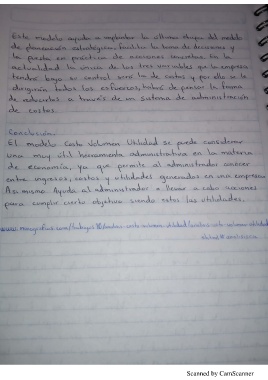 Este modelo ayuda a implantar la última etapa del modelo
de planeación estratégica, facilitar la toma de decisiones y
la puesta en práctica de acciones concretas. En la
actualidad la única de las tres variables que la empresa
tendrá bajo su control será la de costos y por ello se le
dirigirán todos los esfuerzos, habrá de pensar la forma
de reducirlos a través de un sistema de administración
de costos.
Conclusión:
El modelo Costo Volumen Utilidad se puede considerar
una muy útil herramienta administrativa en la materia
de economía, ya que permite al administrador conocer
entre ingresos, costos y utilidades generados en una empresa
Asi mismo Ayuda al administrador a llevar a cabo acciones
para cumplir cierto objetivo siendo estos las utilidades.
Scanned by CamScanner